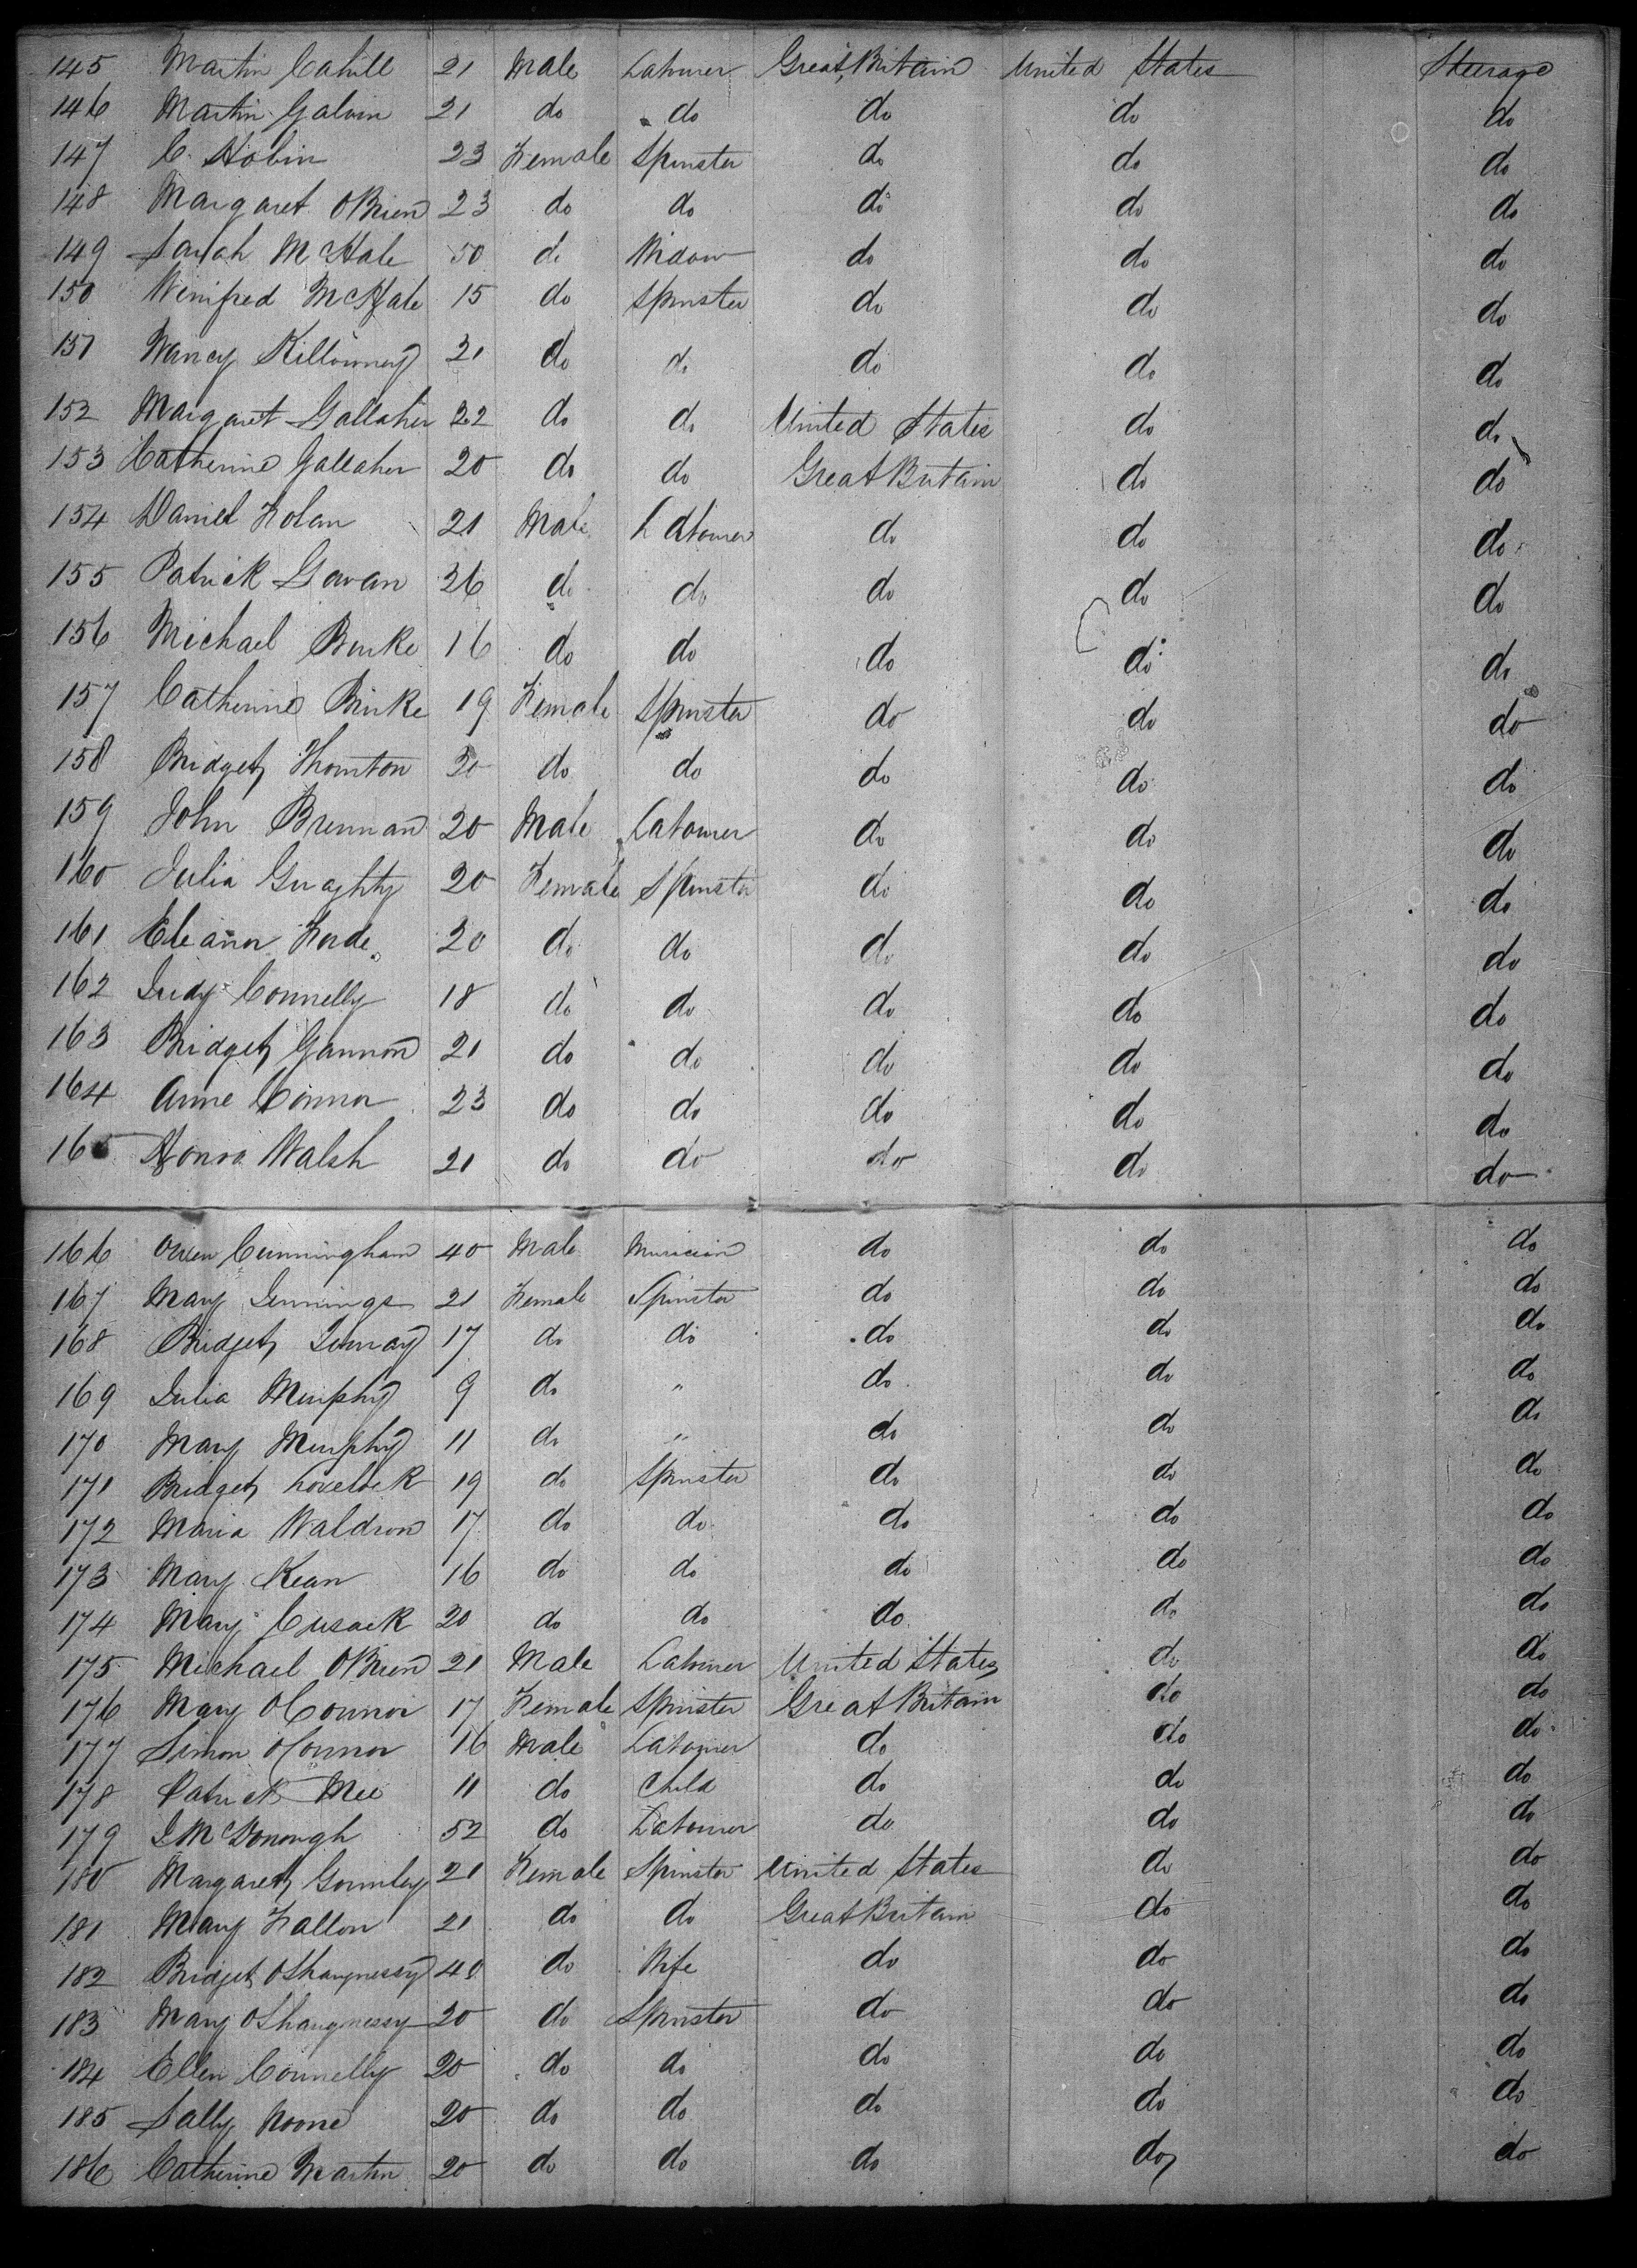 145 Martin Cahill 21 Male Labourer Great Britain United States Steerage
146 Martin Galvin 21 do do do do do
147 C. Hobin 23 Female Spinster do do do
148 Margaret OBrien 23 do do do do do
149 Sarah McHale 50 do Widow do do do
150 Winifred McHale 15 do Spinster do do do
151 Nancy Killourney 21 do do do do do
152 Margaret Gallaher 22 do do United States do do
153 Catherine Gallaher 20 do do Great Britain do do
154 Daniel Folan 21 Male Labourer do do do
155 Patrick Gavan 26 do do do do do
156 Michael Burke 16 do do do do do
157 Catherine Burke 19 Female Spinster do do do
158 Bridget Thornton 20 do do do do do
159 John Brennan 20 Male Labourer do do do
160 Julia Geraghty 20 Female Spinster do do do
161 Eleanor Forde 20 do do do do do
162 Judy Connelly 18 do do do do do
163 Bridget Gannon 21 do do do do do
164 Anne Connor 23 do do do do do
165 Honra Walsh 21 do do do do do
166 Owen Cunningham 40 Male Musician do do do
167 Mary Jennings 21 Female Spinster do do do
168 Bridget 17 do do do do do
169 Julia Murphy 9 do " do do do
170 Mary Murphy 11 do " do do do
171 Bridget Lovelock 19 do Spinster do do do
172 Maria Waldron 17 do do do do do
173 Mary Kean 16 do do do do do
174 Mary Cusack 20 do do do do do
175 Michael OBrien 21 Male Labourer United States do do
176 Mary OConnor 17 Female Spinster Great Britain do do
177 Simon OConnor 16 Male Labourer do do do
178 Patrick Mee 11 do Child do do do
179 J McDonough 52 do Labourer do do do
180 Margaret Gormley 21 Female Spinster United States do do
181 Mary Fallon 21 do do Great Britain do do
182 Bridget OShaugnessy 40 do Wife do do do
183 Mary OShaugnessy 20 do Spinster do do do
184 Ellen Connelly 20 do do do do do
185 Sally Noone 20 do do do do do
186 Catherine Martin 20 do do do do do